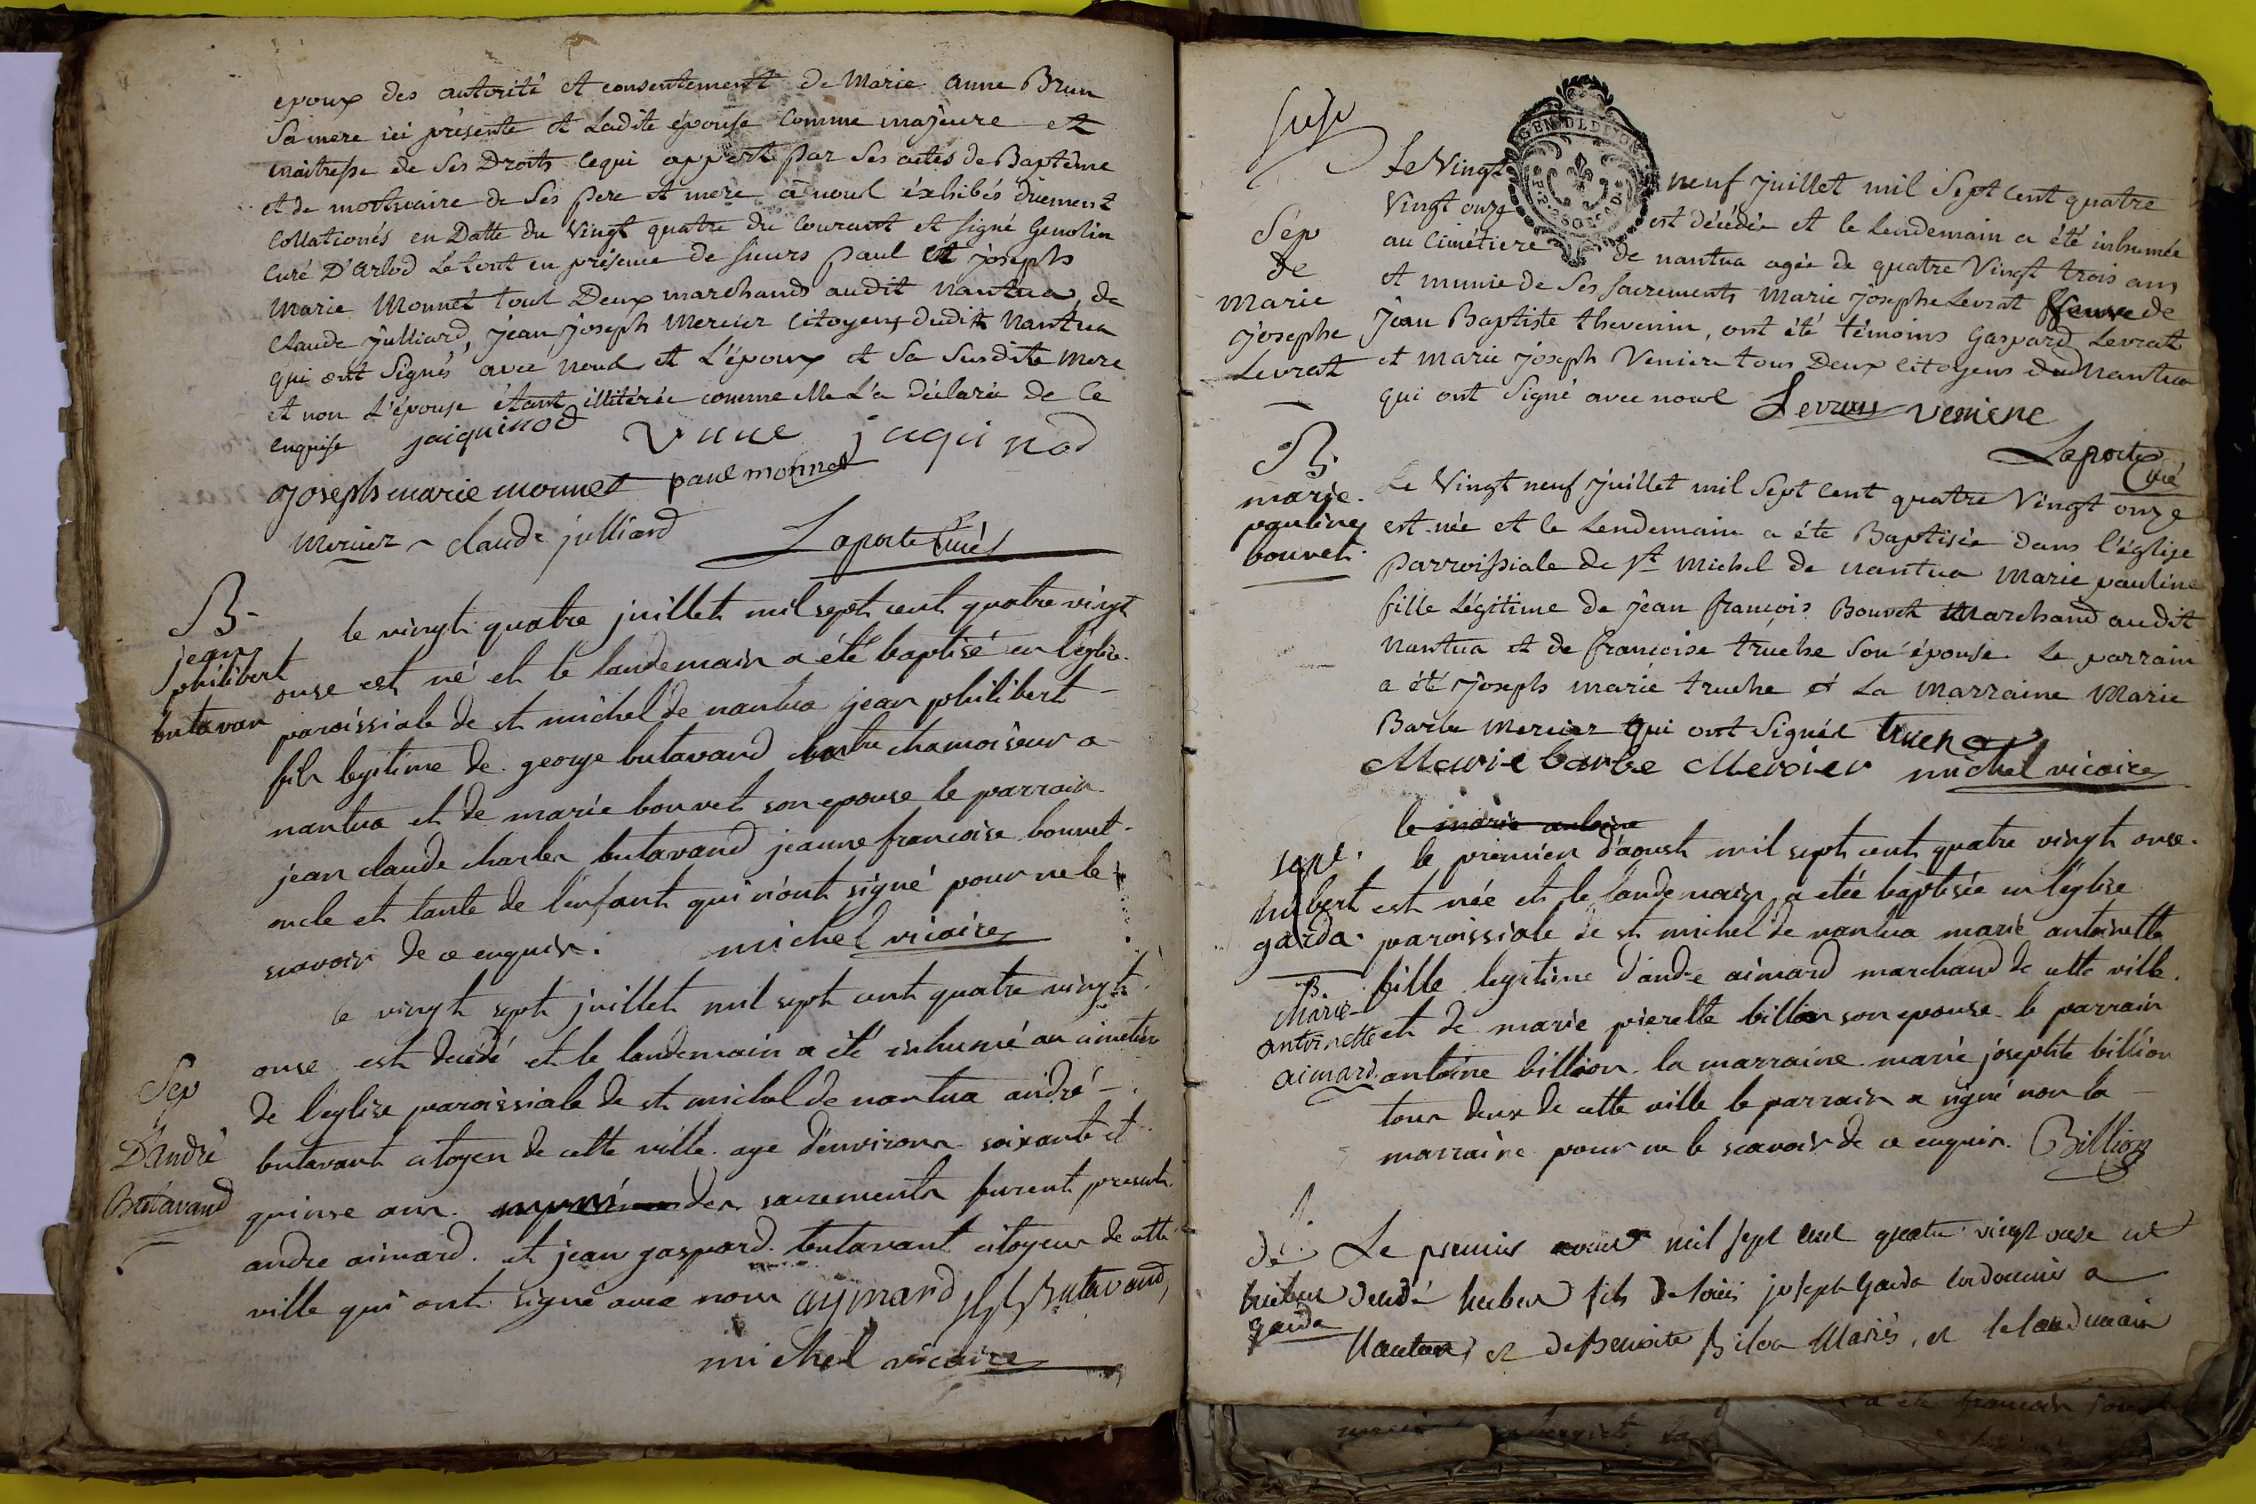 epoux des autorité et consentement de Marie anne Brun
Sa mere ici présente et Ladite épouse Comme majeure et
maitresse de Ses Droits Cequi appert par Ses actes de Baptême
et de mortuaire de Ses pere et mere à nous éxhibés duement
Collationés en Datte du Vingt quatre du Courant et signé Genolin
Curé D'Arlod Le tout en présence de sieurs paul et joseph
Marie Monnet tous Deux marchands audit Nantua, de
Claude julliard, jean joseph Mercier Citoyens dudit Nantua
qui ont Signés avec nous et L'époux et Sa Susdite mere
et non L'épouse étant illitérée comme elle L'a déclarée de Ce
enquise jaiquinod jaqui nod
joseph marie monnet paul monnet
Mercier claude julliard Laporte Curé
B
jean
philibert
butavan
le vingt quatre juillet mil sept cent quatre vingt
onse est né et le landemain a été baptisé en l'église
paroissiale de st michel de nantua jean philibert
fils legitime de george butavand chamoiseur a
nantua et de marie bouvet son epouse le parrain
jean claude charles butavand jeanne francoise bouvet
oncle et tante de l'enfant qui n'ont signé pour ne le
scavoir de ce enquis. michel vicaire
Sep
D'andré
Butavand
le vingt sept juillet mil sept cent quatre vingt
onse est decédé et le landemain a été inhumé au cimetiere
de l'eglise paroissiale de st michel de nantua andré
butavant citoyen de cette ville age d'environ soixante et
quinse ans muni des sacrements furent presents
andre aimard et jean gaspard butavant citoyens de cette
ville qui ont signé avec nous aymard Butavand
michel vicaire
Sép
de
Marie
josephe
Levrat
Le Vingt neuf juillet mil Sept Cent quatre
Vingt onze est décédée et le Lendemain a été inhumée
au Cimétiere de nantua agée de quatre Vingt trois ans
et munie de Ses Sacrements Marie josephe Levrat Veuve de
jean Baptiste thevenin, ont été témoins Gaspard Levrat
et Marie joseph Veniere tous Deux Citoyens dud Nantua
qui ont Signé avec nous Levrat veniere
Laporte Curé
B.
marie
pauline
bouvet
Le Vingt neuf juillet mil Sept Cent quatre Vingt onze
est née et le Lendemain a été Baptisée dans l'église
Parroissiale de st Michel de nantua Marie pauline
fille Légitime de jean françois Bouvet Marchand audit
Nantua et de françoise truche Son épouse Le parrain
a été joseph marie truche et La Marraine Marie
Barbe Mercier qui ont Signés truche
Marie barbe Mercier michel vicaire
sepl.
hubert
garda.
B.
Marie
antoinette
aimard
le marie antoine
le premier d'aoust mil sept cent quatre vingt onse.
est née et le landemain a etée baptisée en l'église
paroissiale de st michel de nantua marie antoinette
fille legitime d'andre aimard marchand de cette ville
et de marie pierette billion son epouse le parrain
antoine billion la marraine marie josephte billion
tous deux de cette ville le parrain a signé non la
marraine pour ne le scavoir de ce enquis. Billion
de
huber
garda
Le premier aout mil sept cent quatre vingt onse est
decedé huber fils de louis joseph Garda Cordonnier a
Nantua, et de Benoite Billon Mariés, et le landemain